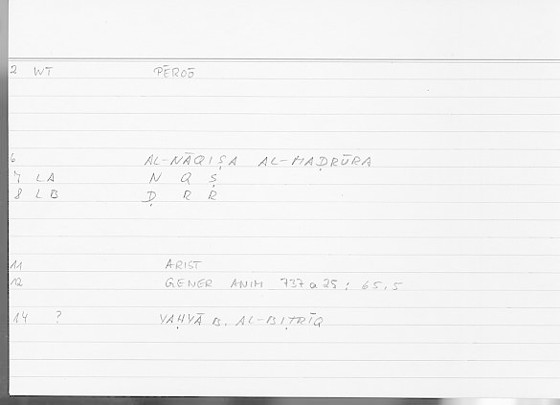 2 WT PĒROŌ
6 AL-NĀQIṢA AL-MAḌRŪRA
7 LA N Q Ṣ
8 LB Ḍ R R
11 ARIST
12 GENER ANIM 737a25 : 65,5
14 ? YAḤYĀ B. AL-BIṬRĪQ